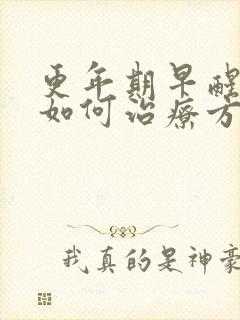 更年期早醒
如何治療方
我真的是神豪